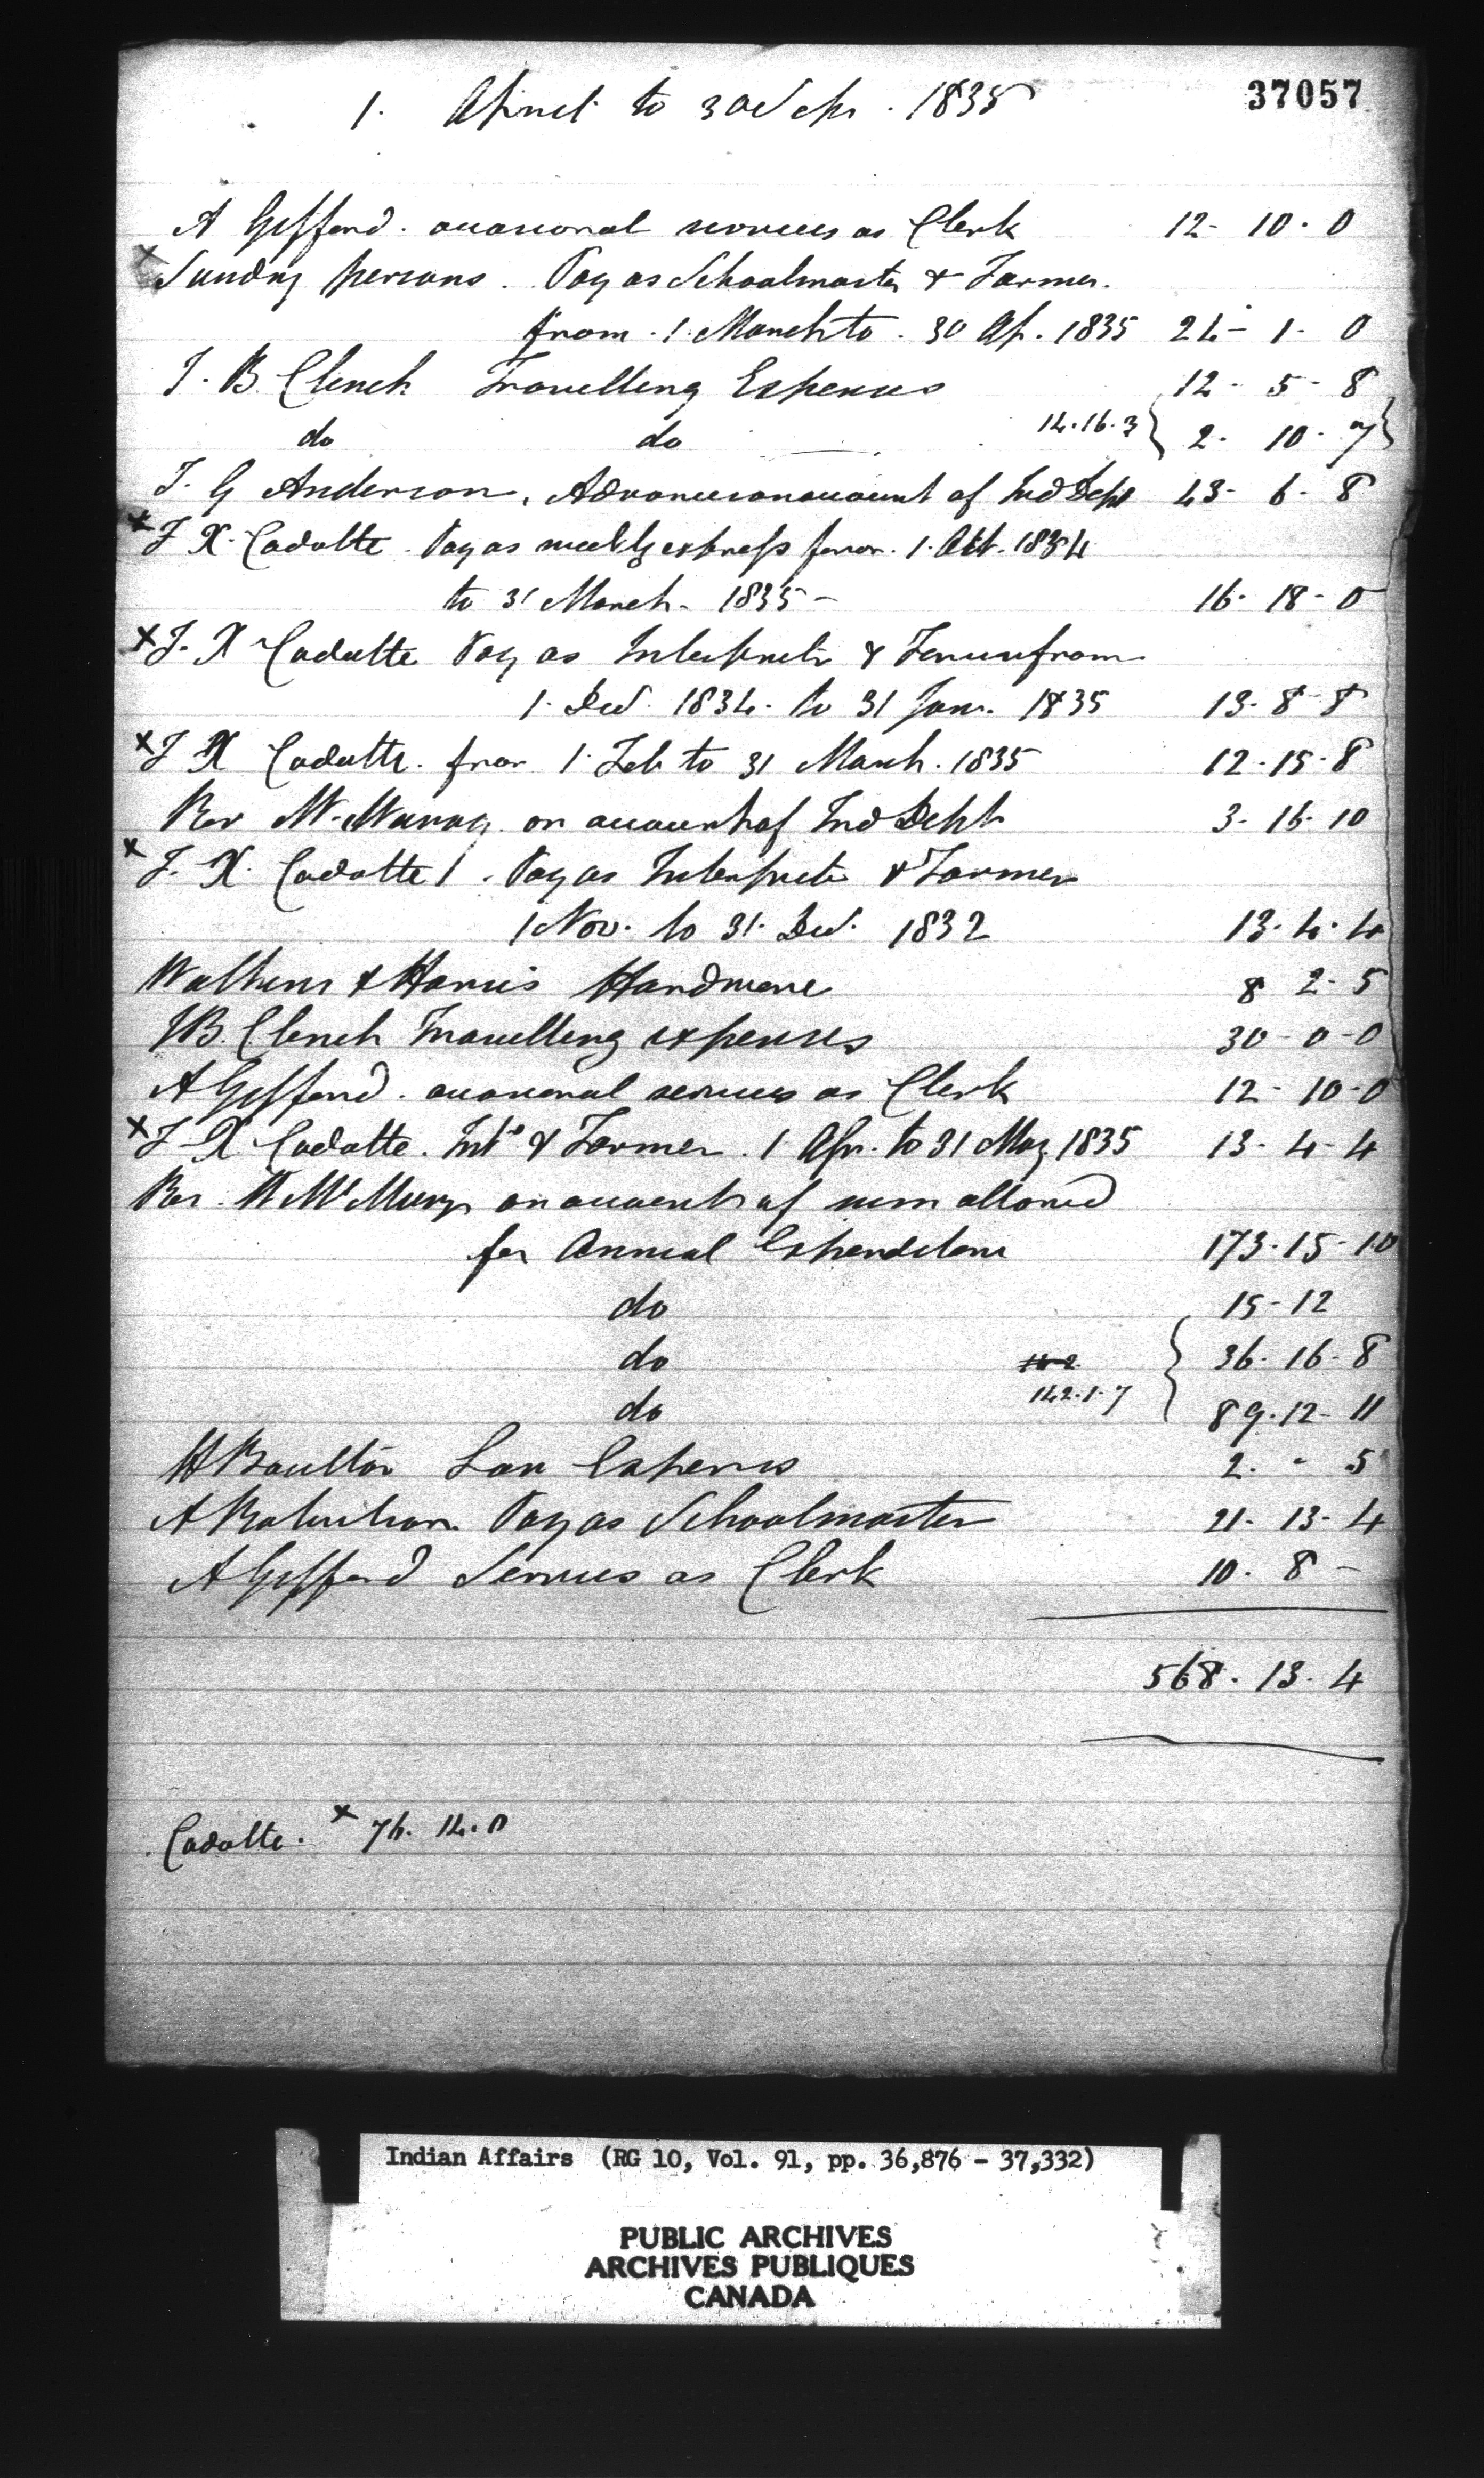 37057
1. April to 30 Sepr. 1835
A Gifford. occasional services as Clerk 12 - 10 . 0
x Sundry persons. Pay as Schoolmaster & Farmer.
from . 1. March to . 30 Ap. 1835 24 - 1 - 0
J. B. Clench Travelling Expenses 12 - 5 - 8
do do 14.16.3 } 2 . 10 - 7 }
T. G Anderson, Advances on account of Ind Dept 43 - 6 - 8
x J X. Cadotte . Pay as express from . 1. Oct. 1834
to 31 March. 1835 - 16 - 18 - 0
x J. X Cadotte Pay as Interpreter & Farmer from
1. Decr. 1834. to 31 Jany. 1835 13 - 8 - 8
x J X Cadotte. from 1. Feb to 31 March. 1835 12 - 15 - 8
Rev on account of Ind Dept 3 - 16 - 10
x J. X. Cadotte . Pay as Interpreter & Farmer
1 Nov. to 31. Decr. 1832 13 . 4 . 4
& Harris Hardware 8 2 - 5
J B. Clench Travelling expenses 30 - 0 - 0
A Gifford . occasional services as Clerk 12 - 10 - 0
x J X Cadotte. Intr & Farmer . 1 Apr. to 31 May 1835 13 - 4 - 4
Rev. W McMurray on account of sum allowed
for Annual Expenditure 173 . 15 - 10
do 15 - 12
do { 36 . 16 - 8
do 142.1.7 89 . 12 - 11
H Boulton Law Expenses 2 . - 5
A Robertson Pay as Schoolmaster 21 - 13 - 4
A Gifford Services as Clerk 10 . 8 -
568 . 13 . 4
Cadotte. x 76. 14. 0
Indian Affairs (RG 10, Vol. 91, pp. 36,876 - 37,332)
PUBLIC ARCHIVES
ARCHIVES PUBLIQUES
CANADA